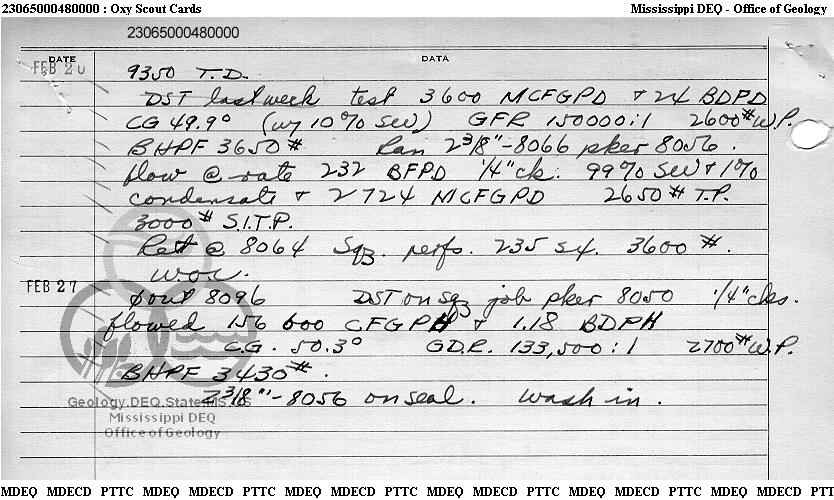 23065000480000 : Oxy Scout Cards Mississippi DEQ - Office of Geology
23065000480000
DATE DATA
FEB 20 9350 T.D.
DST last week test 3600 MCFGPD & 24 BDPD
CG 49.9° (w/ 10% SW) GFR 150000:1 2600# W.P.
BHPF 3650# Ran 2 3/8"-8066 pker 8056.
flow @ rate 232 BFPD 1/4" ck. 99% SW & 1%
condensate & 2724 MCFGPD 2650# T.P.
3000# S.I.T.P.
Ret @ 8064 Sqz. perfs. 235 sx. 3600#.
WOC.
FEB 27 out 8096 DST on sqz job pker 8050 1/4" cks.
flowed 156 600 CFGPH & 1.18 BDPH
C.G. 50.3° G.D.R. 133,500:1 2700# W.P.
BHPF 3430#.
2 3/8"-8056 on seal. Wash in.
Geology.DEQ.State.MS.US
Mississippi DEQ
Office of Geology
MDEQ MDECD PTTC MDEQ MDECD PTTC MDEQ MDECD PTTC MDEQ MDECD PTTC MDEQ MDECD PTTC MDEQ MDECD PTT